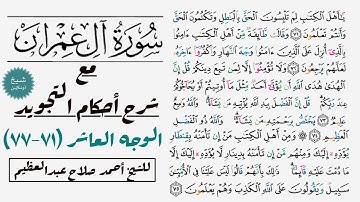 سورة آل عمران
مع
شرح أحكام التجويد
الوجه العاشر (٧١-٧٧)
للشيخ أحمد صلاح عبدالعظيم
شيخ
يَٰٓأَهْلَ ٱلْكِتَٰبِ لِمَ تَلْبِسُونَ ٱلْحَقَّ بِٱلْبَٰطِلِ وَتَكْتُمُونَ ٱلْحَقَّ
وَأَنتُمْ تَعْلَمُونَ ٧١ وَقَالَت طَّآئِفَةٌ مِّنْ أَهْلِ ٱلْكِتَٰبِ ءَامِنُوا۟
بِٱلَّذِىٓ أُنزِلَ عَلَى ٱلَّذِينَ ءَامَنُوا۟ وَجْهَ ٱلنَّهَارِ وَٱكْفُرُوٓا۟ ءَاخِرَهُۥ
لَعَلَّهُمْ يَرْجِعُونَ ٧٢ وَلَا تُؤْمِنُوٓا۟ إِلَّا لِمَن تَبِعَ دِينَكُمْ قُلْ إِنَّ
ٱلْهُدَىٰ هُدَى ٱللَّهِ أَن يُؤْتَىٰٓ أَحَدٌ مِّثْلَ مَآ أُوتِيتُمْ أَوْ يُحَآجُّوكُمْ
عِندَ رَبِّكُمْ قُلْ إِنَّ ٱلْفَضْلَ بِيَدِ ٱللَّهِ يُؤْتِيهِ مَن يَشَآءُ وَٱللَّهُ وَٰسِعٌ
عَلِيمٌ ٧٣ يَخْتَصُّ بِرَحْمَتِهِۦ مَن يَشَآءُ وَٱللَّهُ ذُو ٱلْفَضْلِ
ٱلْعَظِيمِ ٧٤ وَمِنْ أَهْلِ ٱلْكِتَٰبِ مَنْ إِن تَأْمَنْهُ بِقِنطَارٍ
يُؤَدِّهِۦٓ إِلَيْكَ وَمِنْهُم مَّنْ إِن تَأْمَنْهُ بِدِينَارٍ لَّا يُؤَدِّهِۦٓ إِلَيْكَ
إِلَّا مَا دُمْتَ عَلَيْهِ قَآئِمًا ذَٰلِكَ بِأَنَّهُمْ قَالُوا۟ لَيْسَ عَلَيْنَا فِى ٱلْأُمِّيِّـۧنَ
سَبِيلٌ وَيَقُولُونَ عَلَى ٱللَّهِ ٱلْكَذِبَ وَهُمْ يَعْلَمُونَ ٧٥